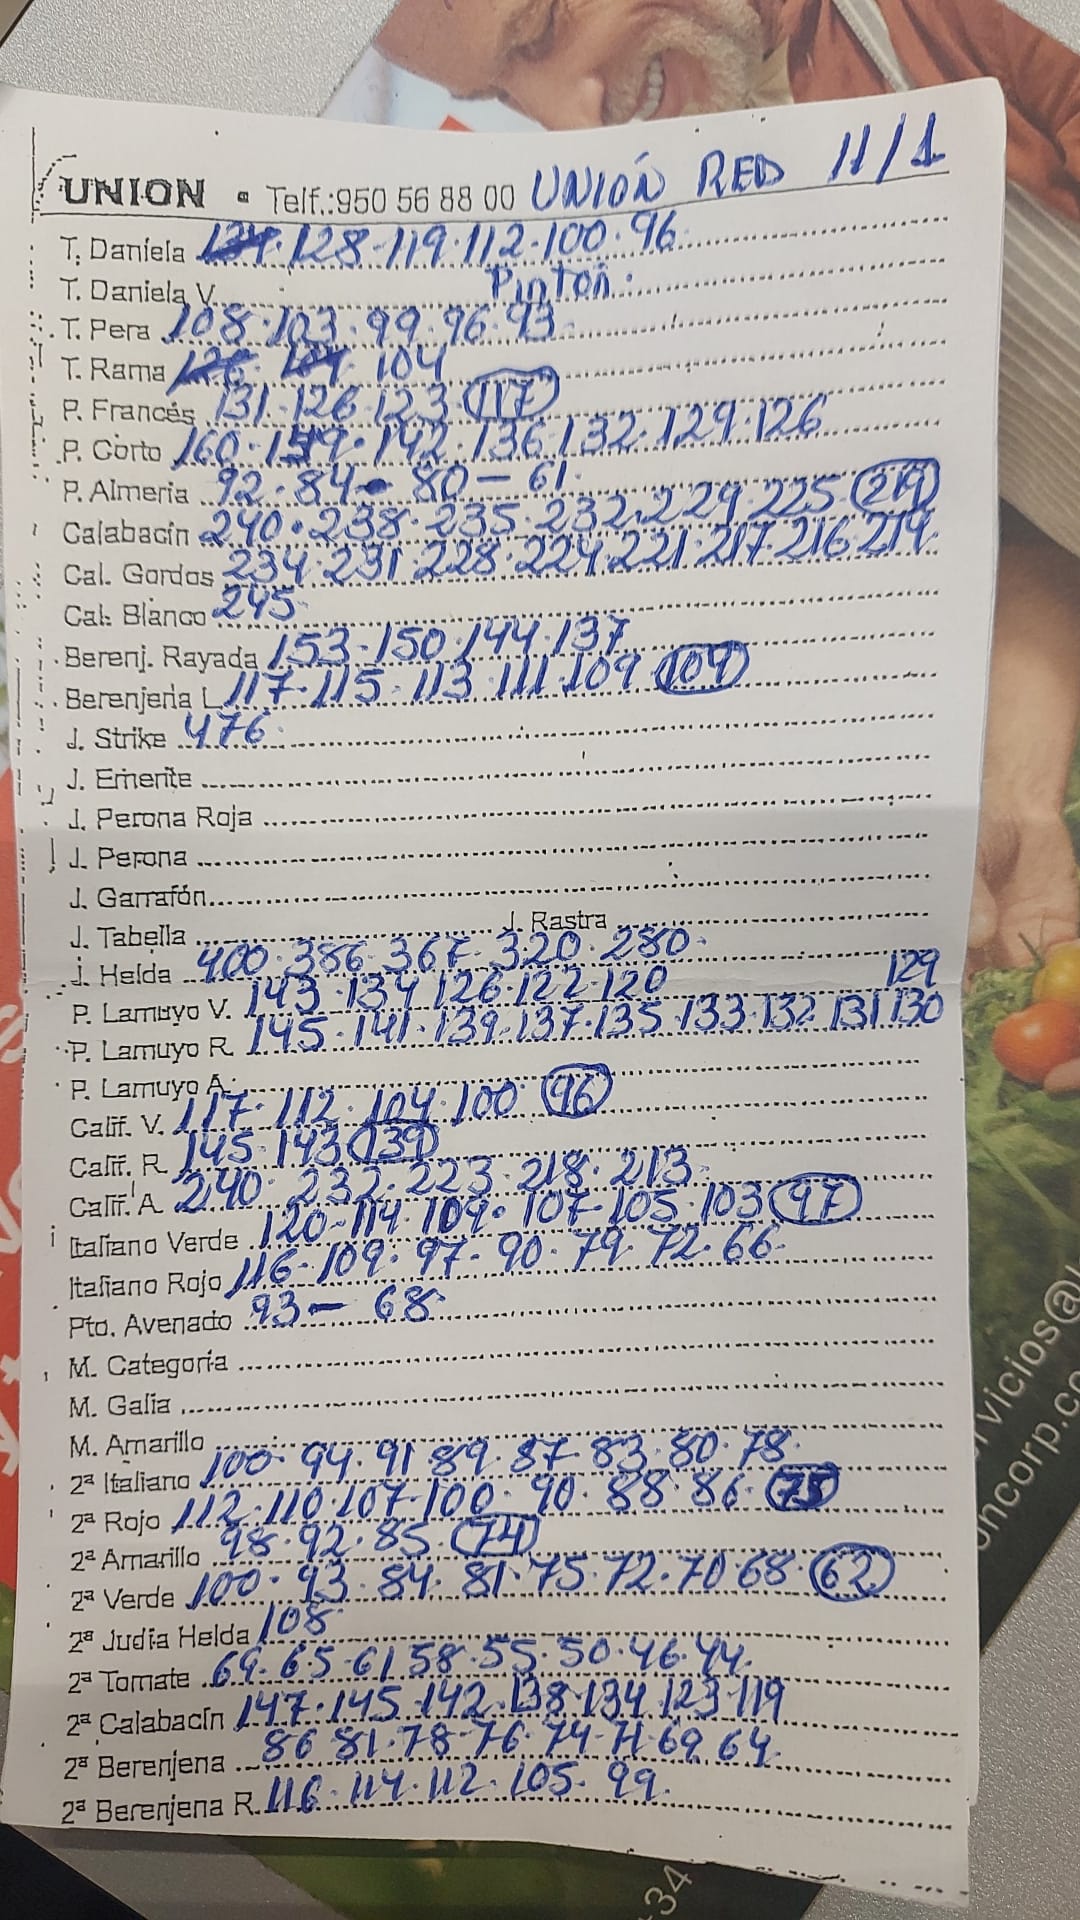 UNION • Telf.:950 56 88 00 UNIÓN RED 11/1
T. Daniela 128-119.112-100.96
T. Daniela V. Pinton.
T. Pera 108.103.99.96.93
T. Rama 104
P. Francés 131.126.123.117
P. Corto 160.159.142.136.132.129.126
P. Almeria 92.84-80-61.
Calabacín 240.238.235.232.229.225.219
Cal. Gordos 234.231.228.224.221.217.216.214.
Cal. Blanco 245
Berenj. Rayada 153-150.144.137
Berenjena L 117.115.113.111.109 104
J. Strike 476.
J. Emerite
J. Perona Roja
J. Perona
J. Garrafón
J. Tabella J. Rastra
J. Helda 400.386.367.320.280.
P. Lamuyo V. 143.134.126.122.120 129
P. Lamuyo R. 145.141.139.137.135.133.132.131 130
P. Lamuyo A.
Calif. V. 117.112.104.100 96
Calif. R. 145.143 139
Calif. A. 240.232.223.218.213.
Italiano Verde 120-114.109.107-105.103 97
Italiano Rojo 116-109.97-90.79.72.66.
Pto. Avenado 93-68
M. Categoría
M. Galia
M. Amarillo
2ª Italiano 100.94.91 89.87.83.80.78.
2ª Rojo 112.110.107-100.90.88.86.75
2ª Amarillo 98.92.85.74
2ª Verde 100.93.84.81.75.72.70 68.62
2ª Judia Helda 108
2ª Tomate 69.65-61 58.55.50.46.44.
2ª Calabacín 147.145.142.138-134.123-119
2ª Berenjena 86 81.78-76.74-71-69 64.
2ª Berenjena R. 116.114.112.105.99.
-34